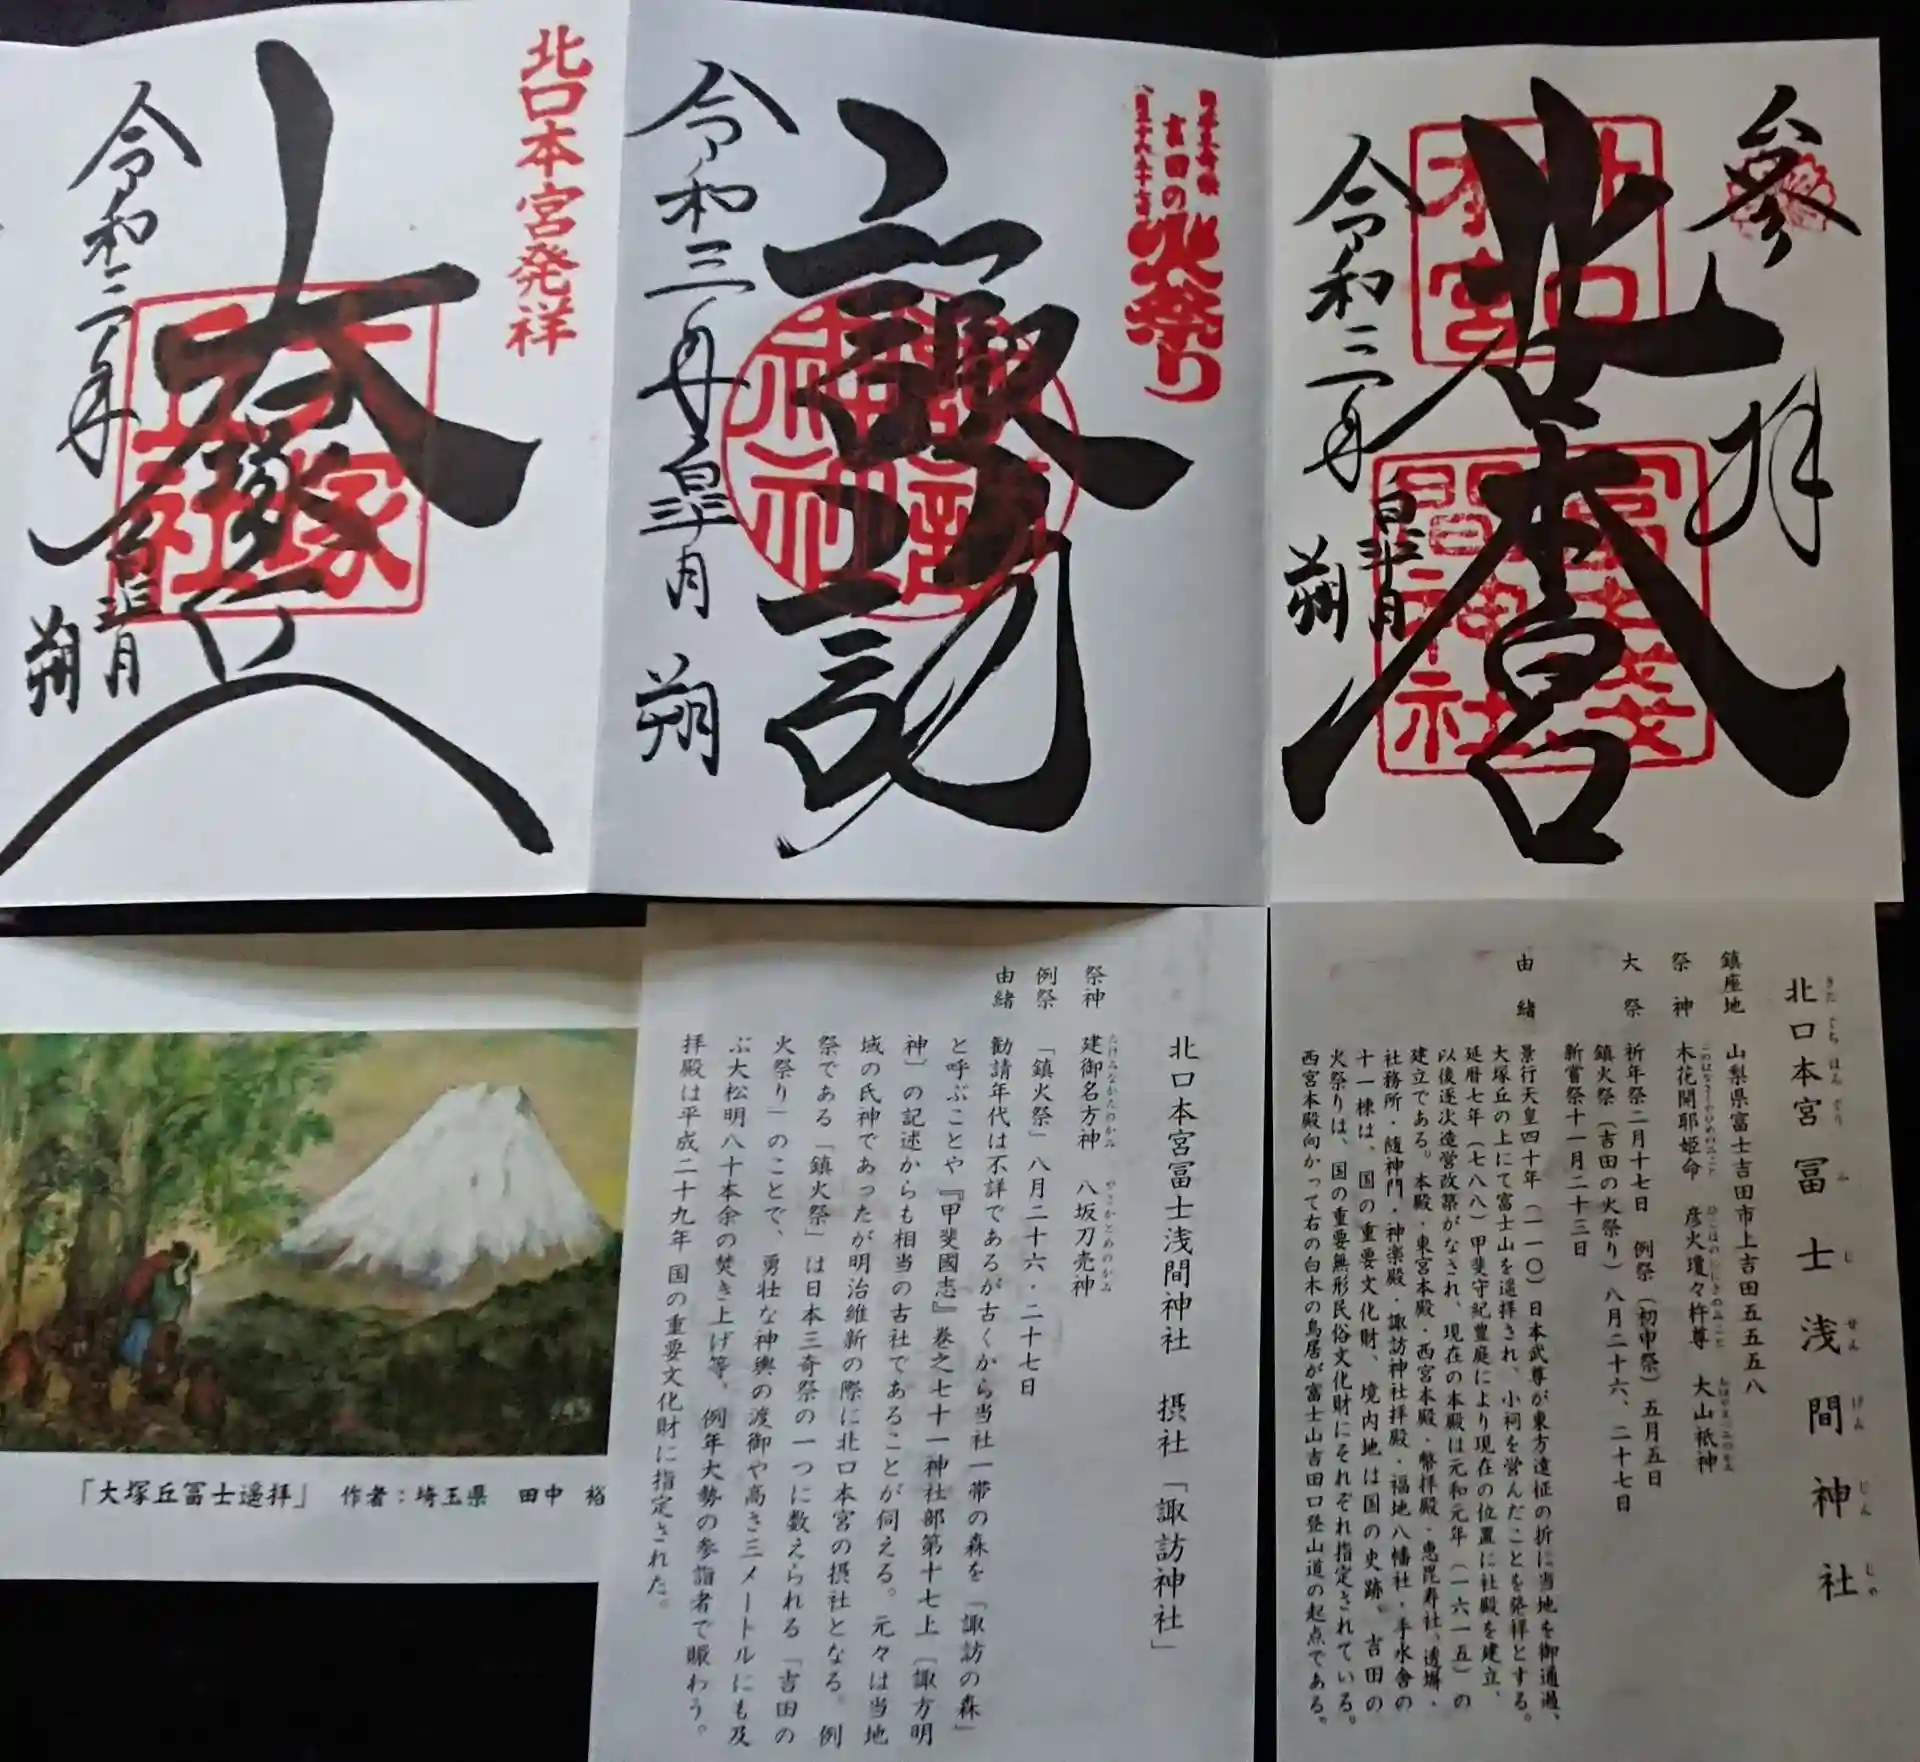 参拝
北口本宮
北口
本宮
冨士浅
間神社
令和三年
皐月
朔
吉田の
火祭り
諏訪
令和三年皐月
朔
北口本宮発祥
大塚丘
塚
社
令和三年
皐月
朔
北口本宮冨士浅間神社
きたぐちほんぐうふじせんげんじんじゃ
鎮座地 山梨県富士吉田市上吉田五五五八
祭神 木花開耶姫命 彦火瓊々杵尊 大山祇神
大祭 祈年祭二月十七日 例祭(初申祭)五月五日
鎮火祭(吉田の火祭り)八月二十六、二十七日
新嘗祭十一月二十三日
由緒 景行天皇四十年(一一〇)日本武尊が東方遠征の折に当地を御通過、
大塚丘の上にて富士山を遥拝され、小祠を営んだことを発祥とする。
延暦七年(七八八)甲斐守紀豊庭により現在の位置に社殿を建立、
以後逐次造営改築がなされ、現在の本殿は元和元年(一六一五)の
建立である。本殿・東宮本殿・西宮本殿・幣拝殿・恵毘寿社、透塀・
社務所・随神門・神楽殿・諏訪神社拝殿・福地八幡社・手水舎の
十一棟は、国の重要文化財、境内地は国の史跡。吉田の
火祭りは、国の重要無形民俗文化財にそれぞれ指定されている。
西宮本殿向かって右の白木の鳥居が富士山吉田口登山道の起点である。
北口本宮冨士浅間神社 摂社「諏訪神社」
祭神 建御名方神 八坂刀売神
たけみなかたのかみ やさかとめのかみ
例祭 「鎮火祭」八月二十六・二十七日
由緒 勧請年代は不詳であるが古くから当社一帯の森を「諏訪の森」
と呼ぶことや『甲斐國志』巻之七十一神社部第十七上〔諏方明
神〕の記述からも相当の古社であることが伺える。元々は当地
域の氏神であったが明治維新の際に北口本宮の摂社となる。例
祭である「鎮火祭」は日本三奇祭の一つに数えられる「吉田の
火祭り」のことで、勇壮な神輿の渡御や高さ三メートルにも及
ぶ大松明八十本余の焚き上げ等、例年大勢の参詣者で賑わう。
拝殿は平成二十九年国の重要文化財に指定された。
「大塚丘冨士遥拝」 作者:埼玉県 田中 裕